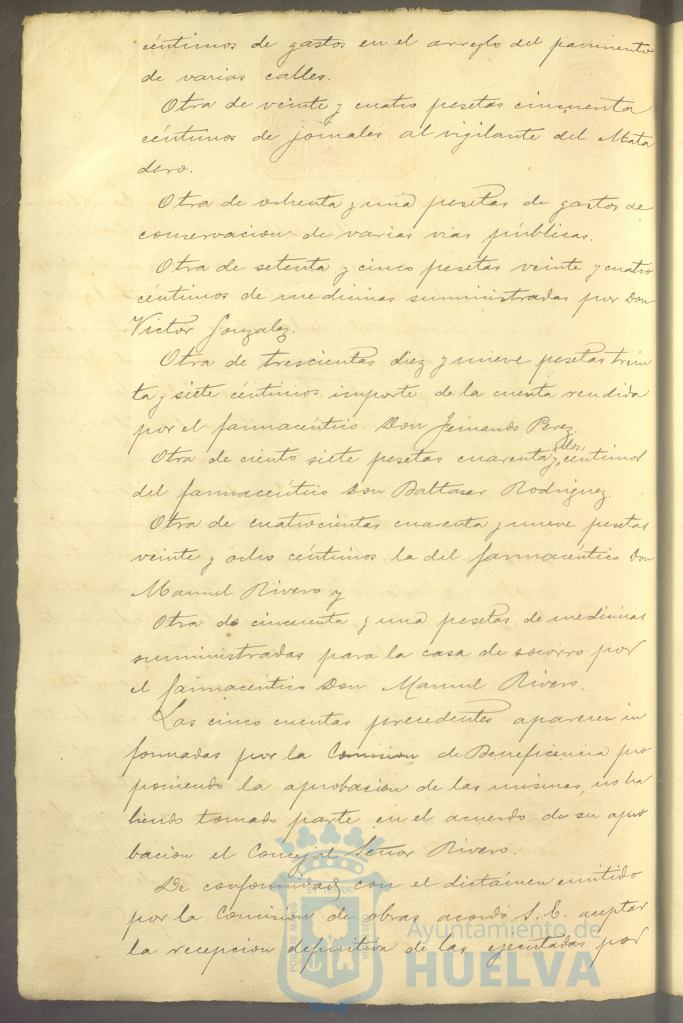 céntimos de gastos en el arreglo del pavimento
de varias calles.
Otra de veinte y cuatro pesetas cincuenta
céntimos de jornales al vigilante del Mata
dero.
Otra de ochenta y una pesetas de gastos de
conservacion de varias vias públicas.
Otra de setenta y cinco pesetas veinte y cuatro
céntimos de medicinas suministradas por Don
Victor Gonzalez.
Otra de trescientas diez y nueve pesetas trein
ta y siete céntimos importe de la cuenta rendida
por el farmacéutico Don Fernando Perez.
Otra de ciento siete pesetas cuarenta y céntimos
del farmacéutico Don Baltasar Rodriguez.
Otra de cuatrocientas cuarenta y nueve pesetas
veinte y ocho céntimos la del farmacéutico Don
Manuel Rivero y
Otra de cincuenta y una pesetas de medicinas
suministradas para la casa de socorro por
el farmacéutico Don Manuel Rivero.
Las cinco cuentas precedentes aparecen in
formadas por la Comision de Beneficencia pro
poniendo la aprobacion de las mismas, no ha
biendo tomado parte en el acuerdo de su apro
bacion el Concejal Señor Rivero.
De conformidad con el dictámen emitido
por la Comision de obras acordó S. E. aceptar
la recepcion definitiva de las ejecutadas por
Ayuntamiento de
HUELVA